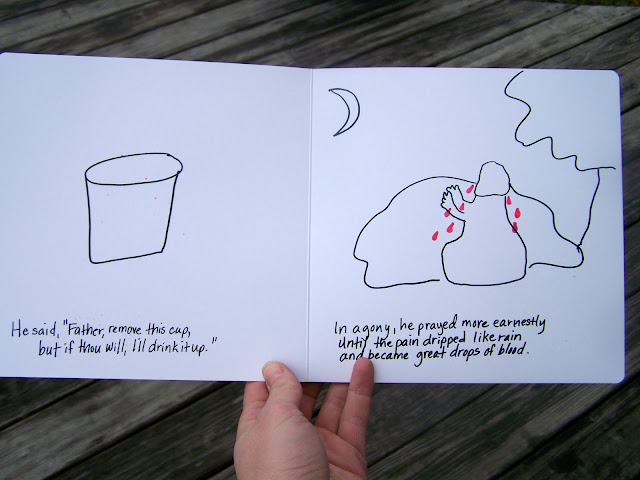 He said, "Father, remove this cup,
but if thou will, I'll drink it up."
In agony, he prayed more earnestly
Until the pain dripped like rain
and became great drops of blood.